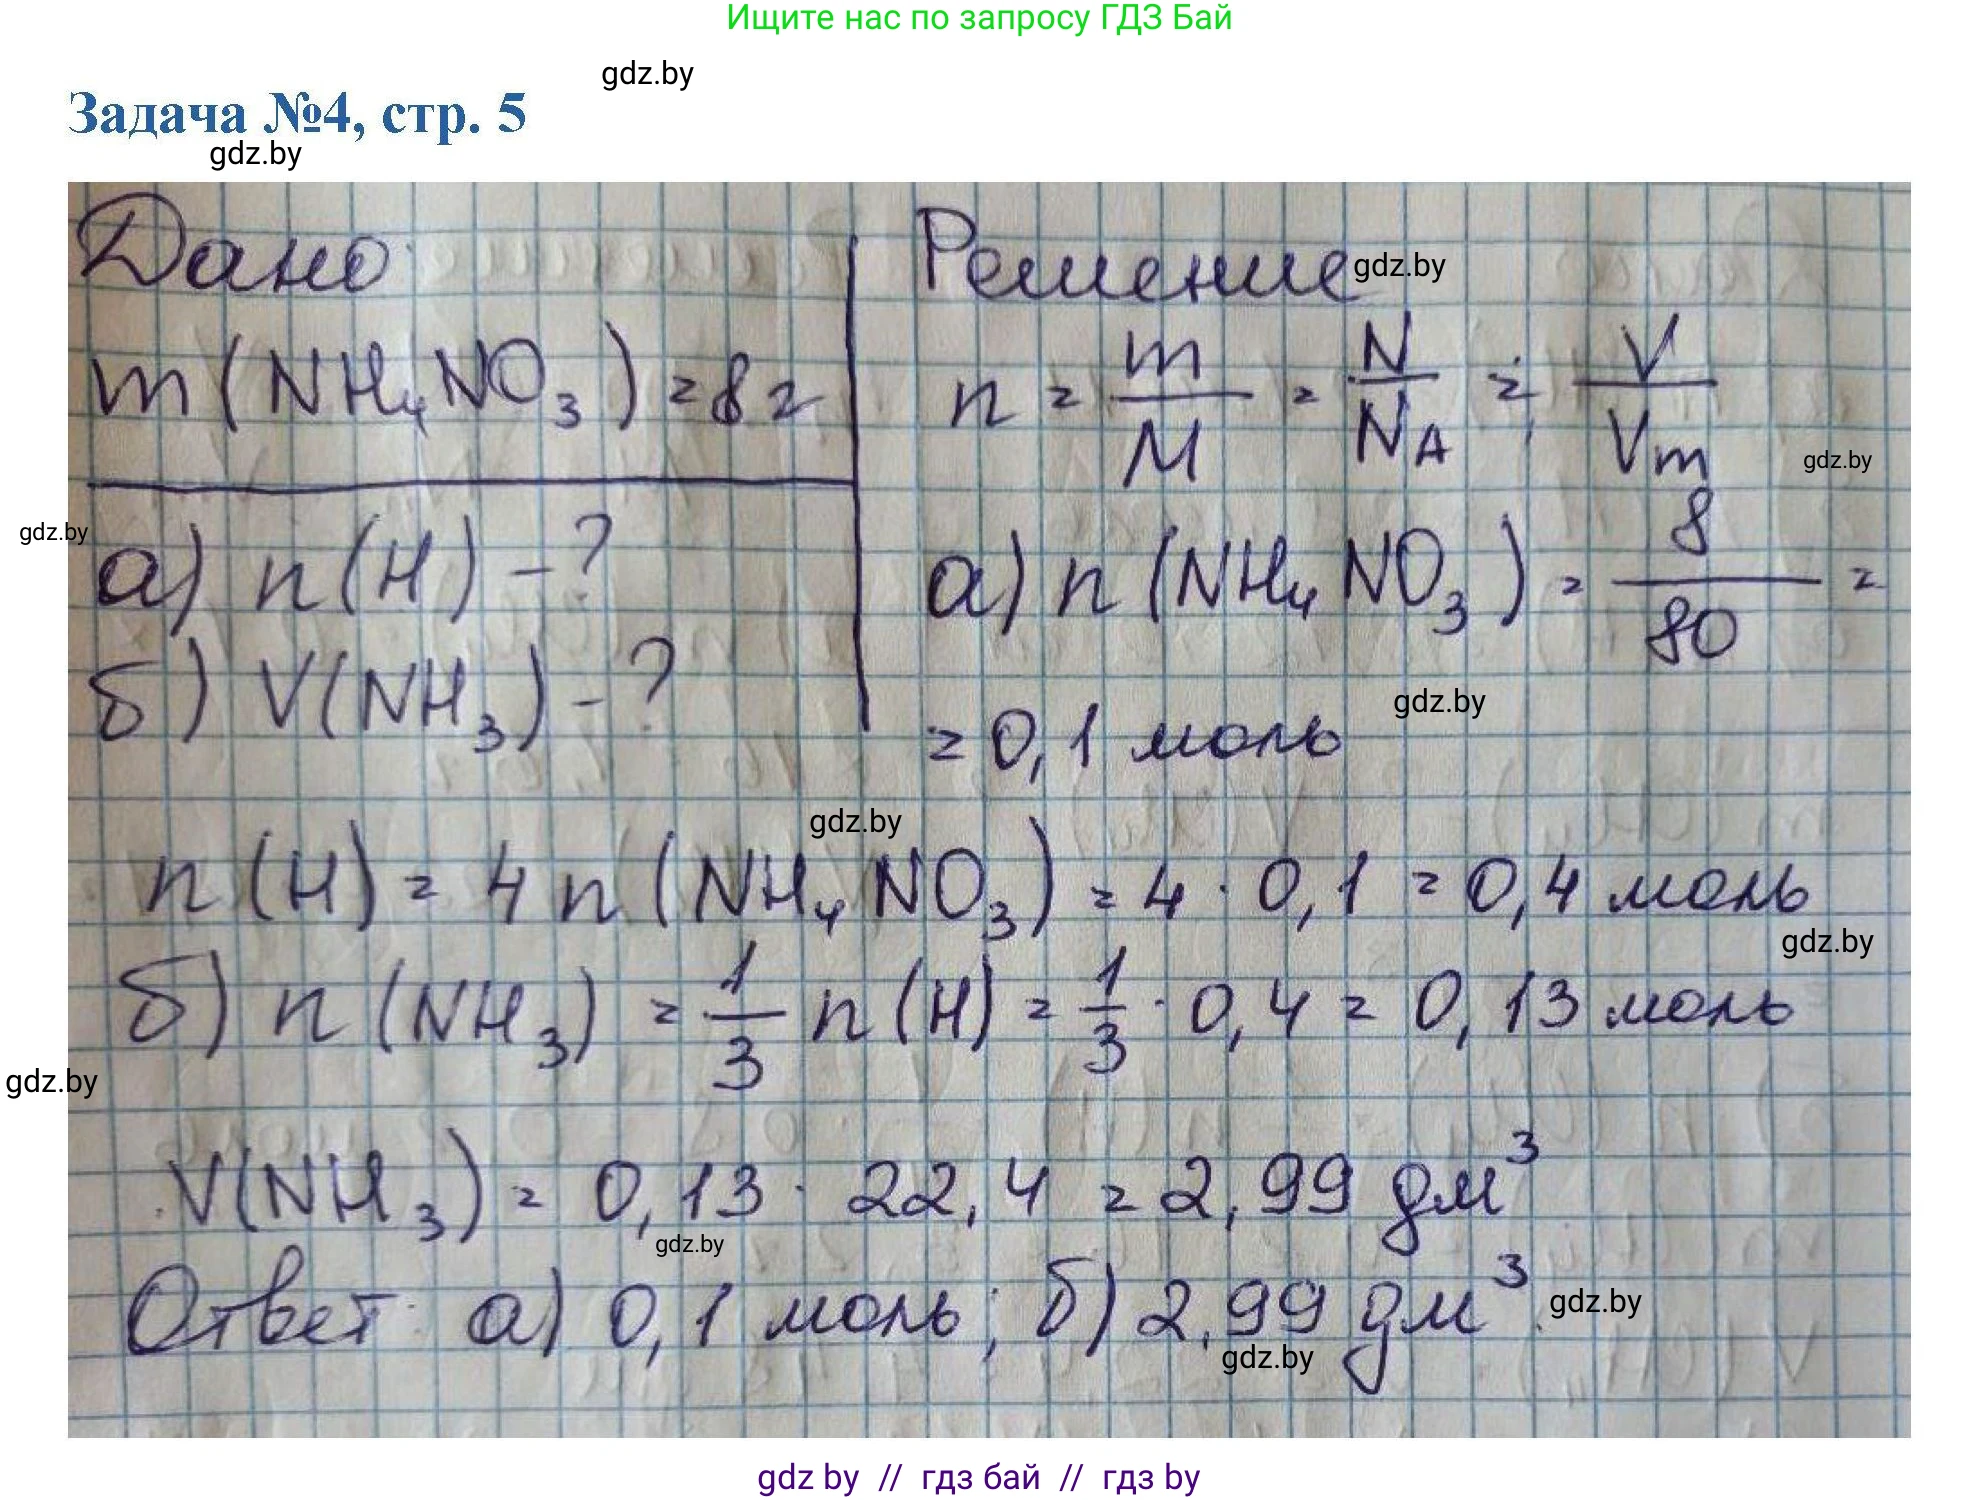 Ищите нас по запросу ГДЗ Бай
gdz.by
Задача №4, стр. 5
gdz.by
Дано:
m(NH₄NO₃) = 8 г
а) n(H) - ?
б) V(NH₃) - ?
Решение
gdz.by
n = m/M = N/N_A = V/Vm
gdz.by
gdz.by
а) n(NH₄NO₃) = 8/80 =
= 0,1 моль
gdz.by
gdz.by
n(H) = 4n(NH₄NO₃) = 4 · 0,1 = 0,4 моль
gdz.by
б) n(NH₃) = 1/3 n(H) = 1/3 · 0,4 = 0,13 моль
gdz.by
V(NH₃) = 0,13 · 22,4 = 2,99 дм³
gdz.by
Ответ: а) 0,1 моль; б) 2,99 дм³.
gdz.by
gdz.by
gdz by // гдз бай // гдз by